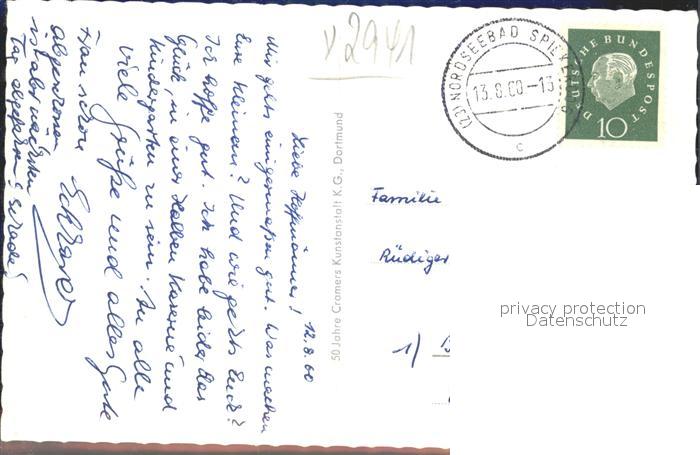 12.8.60
Liebe Hoffmänner!
Mir gehts einigermaßen gut. Was machen
Eure Kleinen? Und wie geht's Euch?
Ich hoffe gut. Ich habe leider das
Glück, in einer halben Kaserne und
Kindergarten zu sein. An alle
viele Grüße und alles Gute
Frau schon
abgefahren
ist aber nächsten
Tag abgefahren! schade!
V 2941
50 Jahre Cramers Kunstanstalt K.G., Dortmund
(23) NORDSEEBAD SPIEK
13.8.60-13
c
DEUTSCHE BUNDESPOST
10
Familie
Rüdiger
1)
privacy protection
Datenschutz